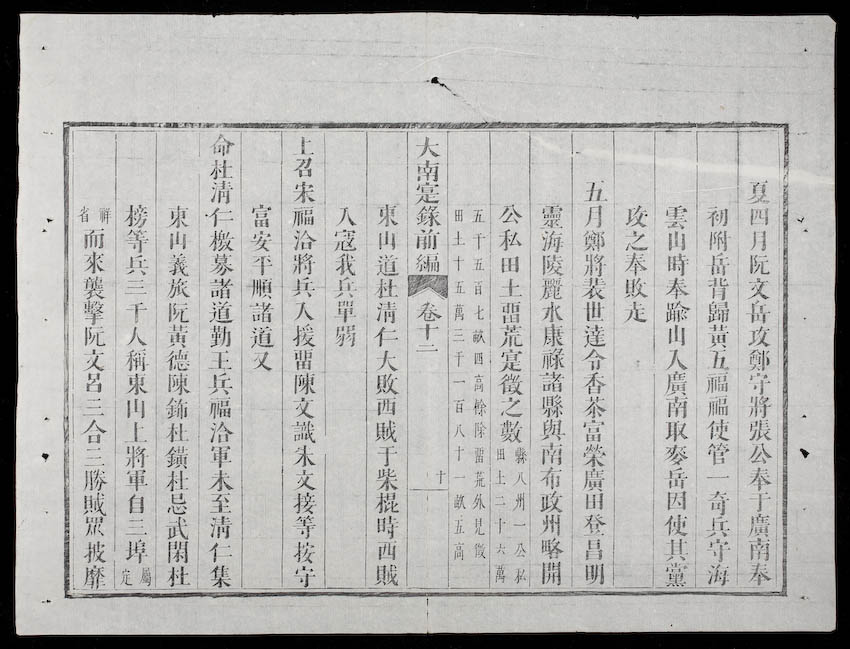 夏四月阮文岳攻鄭守將張公奉于廣南奉
初附岳背歸黃五福福使管一奇兵守海
雲山時奉踰山入廣南取麥岳因使其黨
攻之奉敗走
五月鄭將裴世達令香茶富榮廣田登昌明
靈海陵麗水康祿諸縣與南布政州略開
公私田土畱荒寔徵之數縣八州一公私田土二十六萬
五千五百七畝四高餘除畱荒外見徵田土十五萬三千一百八十一畝五高
大南寔錄前編 卷十二 十
東山道杜清仁大敗西賊于柴棍時西賊
入寇我兵單弱
上召宋福洽將兵入援畱陳文識朱文接等按守
富安平順諸道又
命杜清仁檄募諸道勤王兵福洽軍未至清仁集
東山義旅阮黃德陳鈽杜鐄杜忌武閑杜
榜等兵三千人稱東山上將軍自三埠屬定
祥省而來襲擊阮文呂三合三勝賊眾披靡